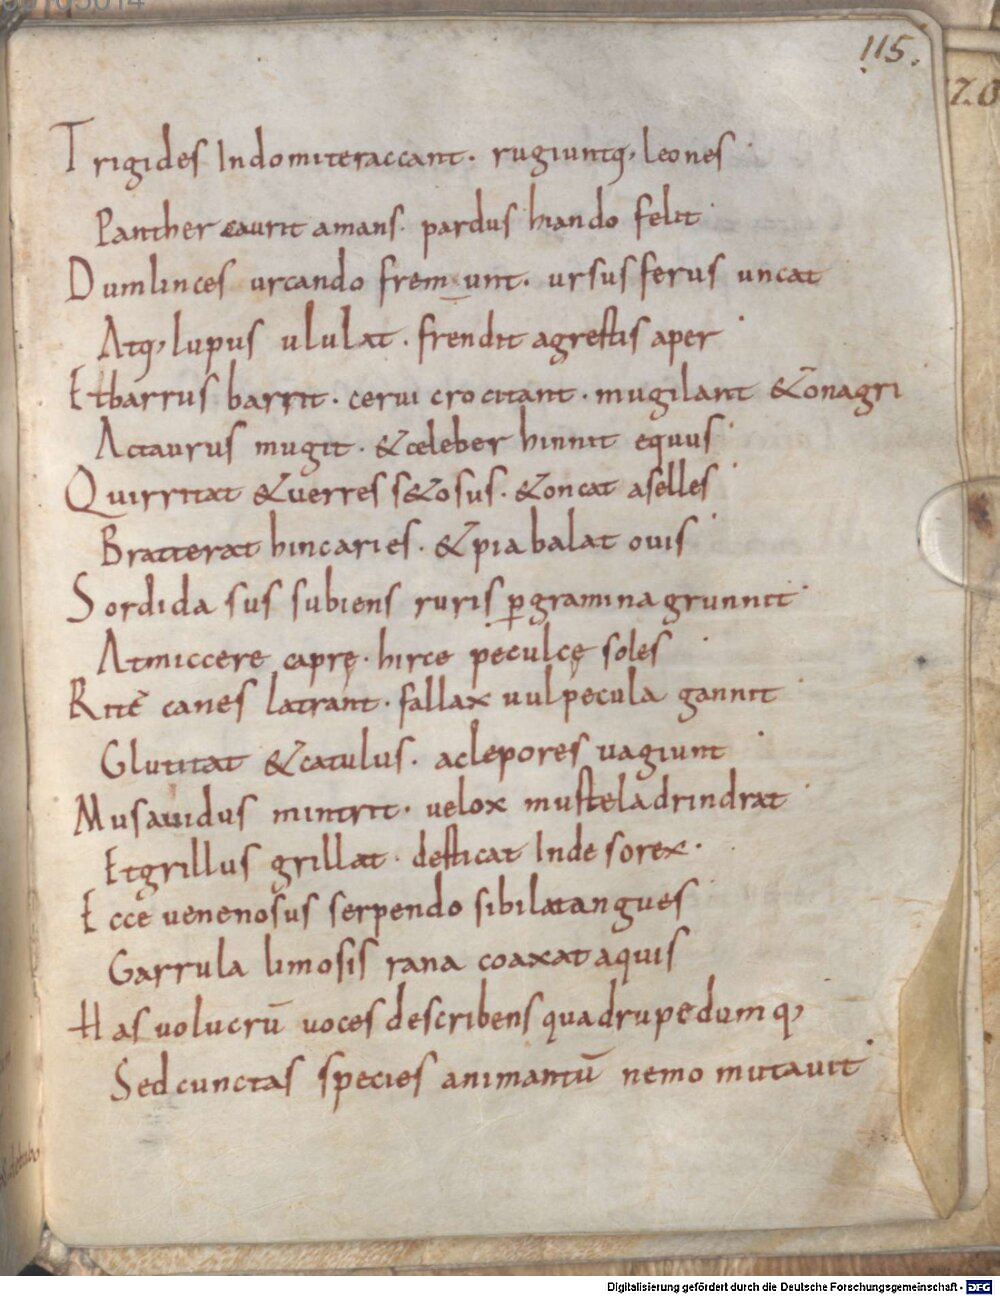 115.
Trigides Indomiteraccant. rugiuntq; leones
Panther caurit amans. pardus hiando felit
Dumlinces urcando fremunt. ursus ferus uncat
Atq; lupus ululat. frendit agrestis aper
Etbarrus barrit. cerui crocitant. mugilant &onagri
Actaurus mugit. &celeber hinnit equus
Quirritat &uerres s&osus. &oncat aselles
Bratterat hincaries. &pia balat ouis
Sordida sus subiens ruris ꝑgramina grunnit
Atmiccere caprę. hirce peculcę soles
Rite canes latrant. fallax uulpecula gannit
Glutitat &catulus. aclepores uagiunt
Musauidus mintrit. uelox musteladrindrat
Etgrillus grillat. desticat Inde sorex.
Ecce uenenosus serpendo sibilatangues
Garrula limosis rana coaxataquis
Has uolucrū uoces describens quadrupedumq;
Sed cunctas species animantū nemo mutauit
Digitalisierung gefördert durch die Deutsche Forschungsgemeinschaft - DFG